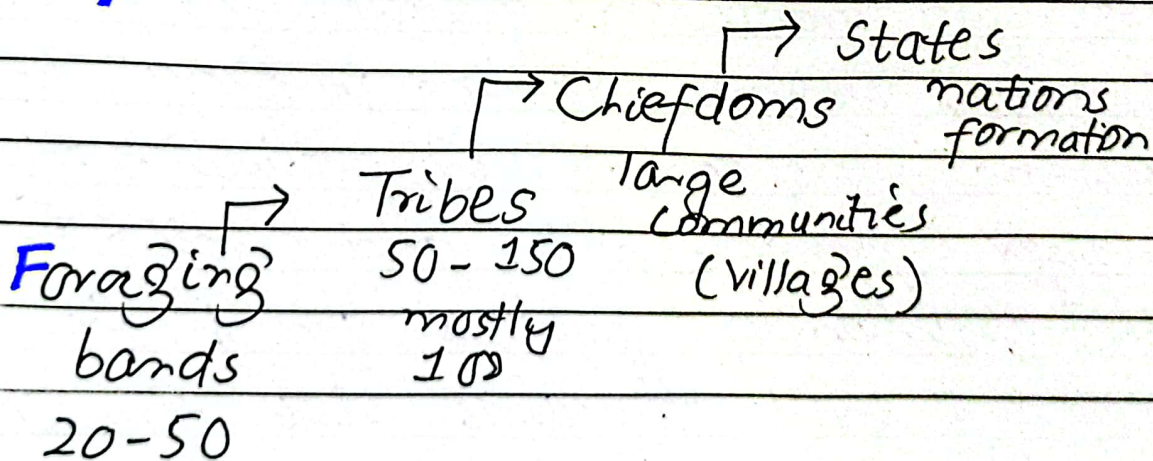 States
nations
formation
Chiefdoms
large
communities
(villages)
Tribes
50-150
mostly
100
Foraging
bands
20-50